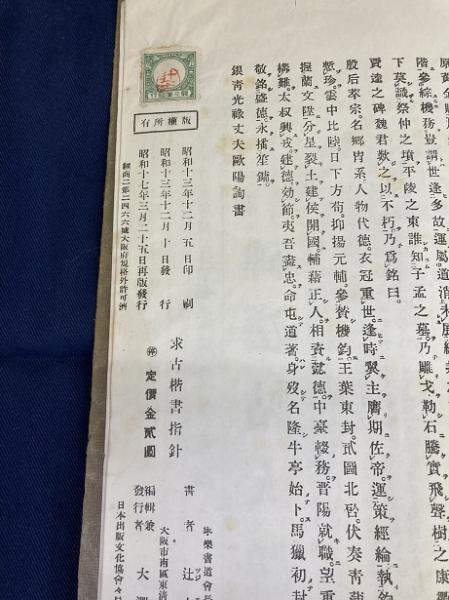 階參綜機務豈謂世逢多故運屬道消未展經
下莫識祭仲之墳平陵之東誰知子孟之墓乃雕戈勒石騰實飛聲樹之康
賈逵之碑魏君歎之以不朽乃爲銘曰。
殷后莘宗名卿胄系人物代德衣冠重世逢時翼主膺期佐帝運策經綸執鈞
雲中比陸日下方荀抑揚元輔參贊機鈞王葉東封貳圖北啓伏奏青
握蘭文陛分星裂土建侯開國輔藉正人相資懿德中臺輟務晉陽就職望重
構難太叔興戎建德効節夷吾盡忠命屯道著身歿名隆牛亭始卜馬獵初封
敬銘盛德永播笙鏞
銀青光祿丈大歐陽詢書
版權所有
昭和十三年十二月五日印刷
昭和十三年十二月十日發行
昭和十七年三月二十五日再版發行
經商二第二四六六號大阪府規格外許可濟
求古楷書指針
㊞定價金貳圓
書道會
書者辻
大阪市南區東清
編輯兼發行者大
日本出版文化協會